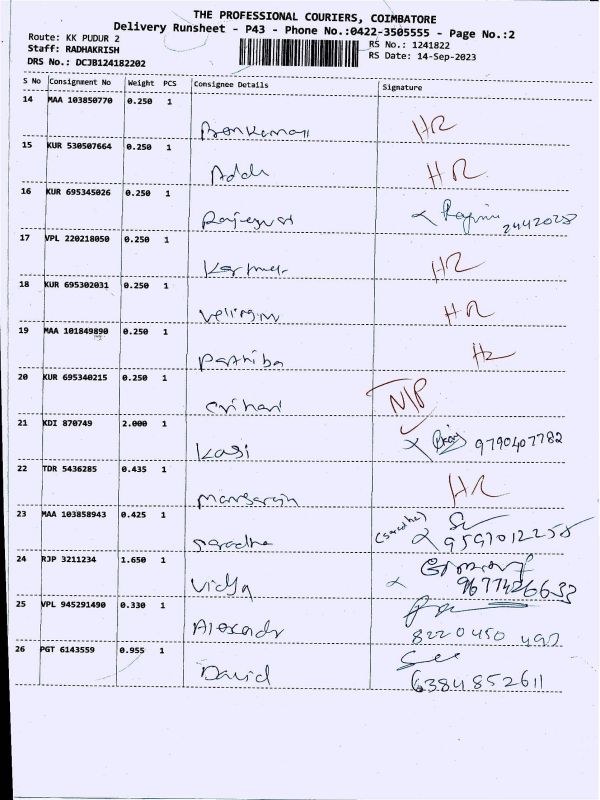 THE PROFESSIONAL COURIERS, COIMBATORE
Delivery Runsheet - P43 - Phone No.:0422-3505555 - Page No.:2
Route: KK PUDUR 2 RS No.: 1241822
Staff: RADHAKRISH RS Date: 14-Sep-2023
DRS No.: DCJB124182202
S No Consignment No Weight PCS Consignee Details Signature
14 MAA 103850770 0.250 1
HR
15 KUR 530507664 0.250 1
HR
16 KUR 695345026 0.250 1
17 VPL 220218050 0.250 1
HR
18 KUR 695302031 0.250 1
HR
19 MAA 101849890 0.250 1
Parthiba HR
20 KUR 695340215 0.250 1
Srihari N/P
21 KDI 870749 2.000 1
Kasi 9790407782
22 TDR 5436285 0.435 1
HR
23 MAA 103858943 0.425 1
saradha (saradha) 9597012258
24 RJP 3211234 1.650 1
Vidya 9677426633
25 VPL 945291490 0.330 1
8220450490
26 PGT 6143559 0.955 1
David 6384852611